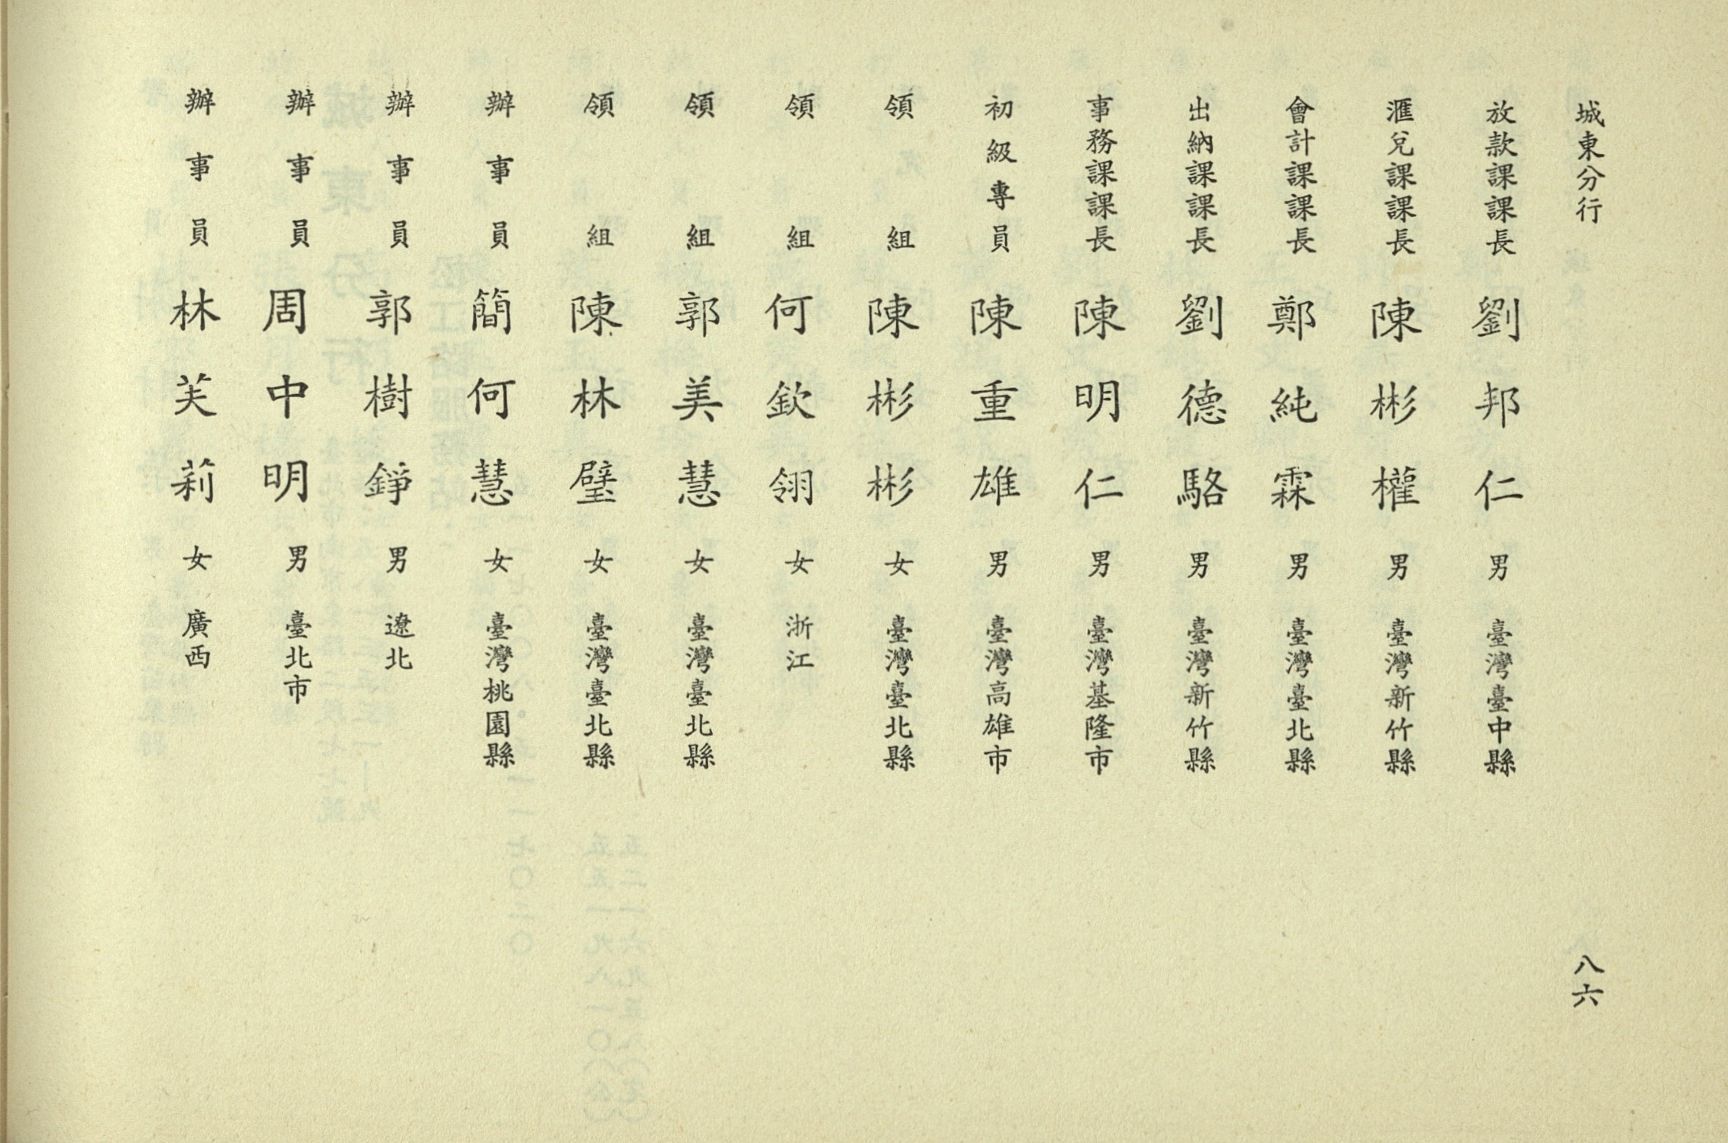 城東分行
八六
放款課課長 劉邦仁 男 臺灣臺中縣
滙兌課課長 陳彬權 男 臺灣新竹縣
會計課課長 鄭純霖 男 臺灣臺北縣
出納課課長 劉德駱 男 臺灣新竹縣
事務課課長 陳明仁 男 臺灣基隆市
初級專員 陳重雄 男 臺灣高雄市
領組 陳彬彬 女 臺灣臺北縣
領組 何欽翎 女 浙江
領組 郭美慧 女 臺灣臺北縣
領組 陳林璧 女 臺灣臺北縣
辦事員 簡何慧 女 臺灣桃園縣
辦事員 郭樹錚 男 遼北
辦事員 周中明 男 臺北市
辦事員 林芙莉 女 廣西